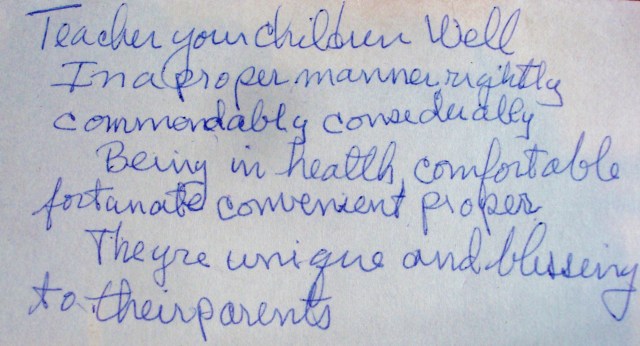 Teacher your children Well
In a proper manner, rightly
commendably considerally
Being in health, comfortable
fortanate convenient proper.
Theyre unique and blesseing
to their parents